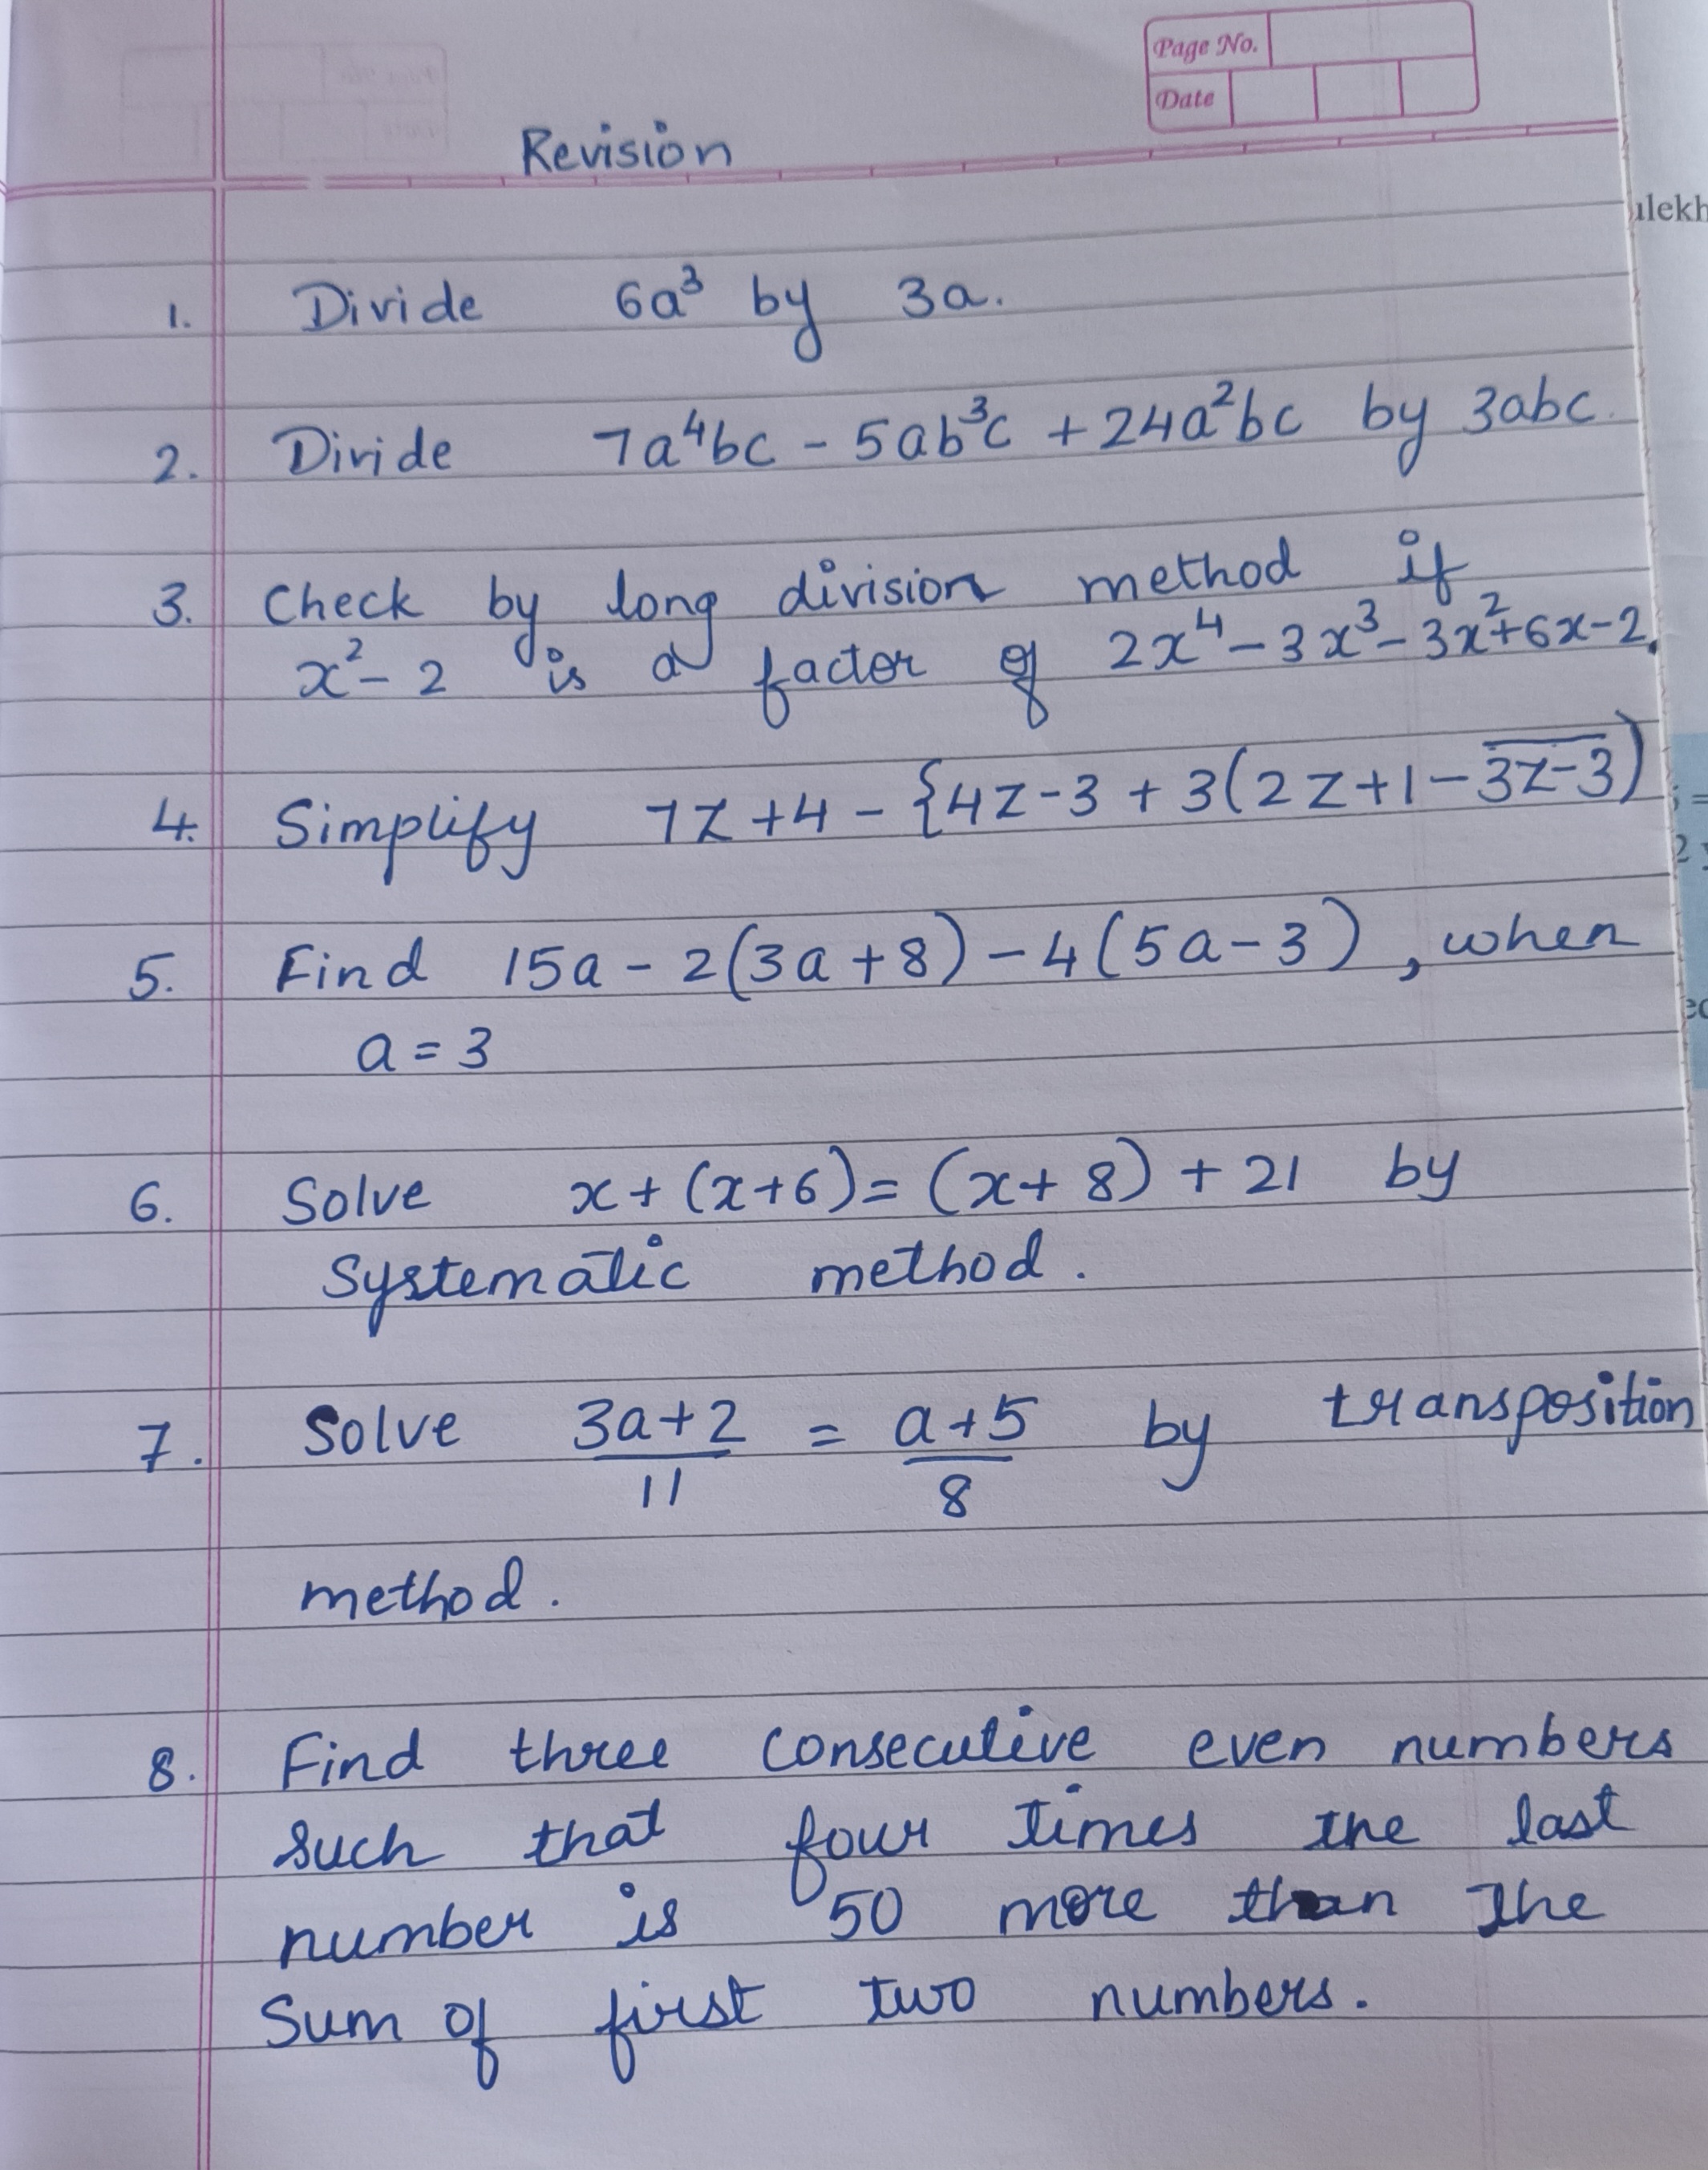 Page No.
Date
Revision
ulekh
1. Divide 6a³ by 3a.
2. Divide 7a⁴bc - 5ab³c + 24a²bc by 3abc.
3. Check by long division method if
x² - 2 is a factor of 2x⁴ - 3x³ - 3x² + 6x - 2.
4. Simplify 7z + 4 - {4z - 3 + 3(2z + 1 - 3̅z̅ ̅-̅ ̅3̅)
5. Find 15a - 2(3a + 8) - 4(5a - 3), when
a = 3
6. Solve x + (x + 6) = (x + 8) + 21 by
Systematic method.
7. Solve (3a + 2)/11 = (a + 5)/8 by transposition
method.
8. Find three consecutive even numbers
such that four times the last
number is 50 more than the
Sum of first two numbers.